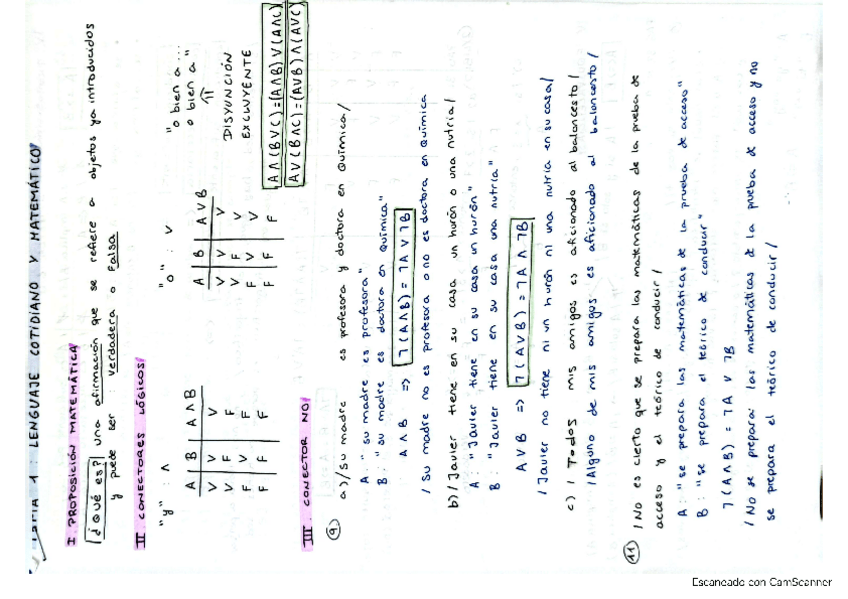 TEMA 1 : LENGUAJE COTIDIANO Y MATEMÁTICO
I. PROPOSICIÓN MATEMÁTICA
¿Qué es? una afirmación que se refiere a objetos ya introducidos
y puede ser : verdadera o Falsa
II CONECTORES LÓGICOS
"y" : ∧
A | B | A∧B
V V V
V F F
F V F
F F F
"o" : ∨
A | B | A∨B
V V V
V F V
F V V
F F F
"o bien a ...
o bien a "
⇑
DISYUNCIÓN
EXCLUYENTE
A∧(B∨C)=(A∧B)∨(A∧C)
A∨(B∧C)=(A∨B)∧(A∨C)
III. CONECTOR NO
9 a) / Su madre es profesora y doctora en Química /
A : " su madre es profesora"
B : " su madre es doctora en química"
A∧B => ¬(A∧B) = ¬A∨¬B
/ Su madre no es profesora o no es doctora en Química
b) / Javier tiene en su casa un hurón o una nutria /
A : "Javier tiene en su casa un hurón"
B : "Javier tiene en su casa una nutria"
A∨B => ¬(A∨B) = ¬A∧¬B
/ Javier no tiene ni un hurón ni una nutria en su casa /
c) / Todos mis amigos es aficionado al baloncesto /
/ Alguno de mis amigos es aficionado al baloncesto /
11 / No es cierto que se prepara las matemáticas de la prueba de
acceso y el teórico de conducir /
A : "se prepara las matemáticas de la prueba de acceso"
B : "se prepara el teórico de conducir"
¬(A∧B) = ¬A ∨ ¬B
/ No se prepara las matemáticas de la prueba de acceso y no
se prepara el teórico de conducir /
Escaneado con CamScanner